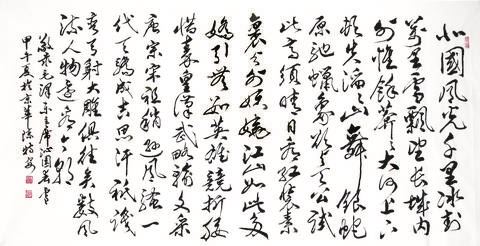 北國風光千里冰封
萬里雪飄望長城内
外惟餘莽莽大河上下
頓失滔滔山舞銀蛇
原馳蠟象欲與天公試
比高須晴日看紅裝素
裹分外妖嬈江山如此多
嬌引無數英雄競折腰
惜秦皇漢武略輸文采
唐宗宋祖稍遜風騷一
代天驕成吉思汗祇識
彎弓射大雕俱往矣數風
流人物還看今朝
敬录毛澤东主席沁園春雪
甲午夏於京華